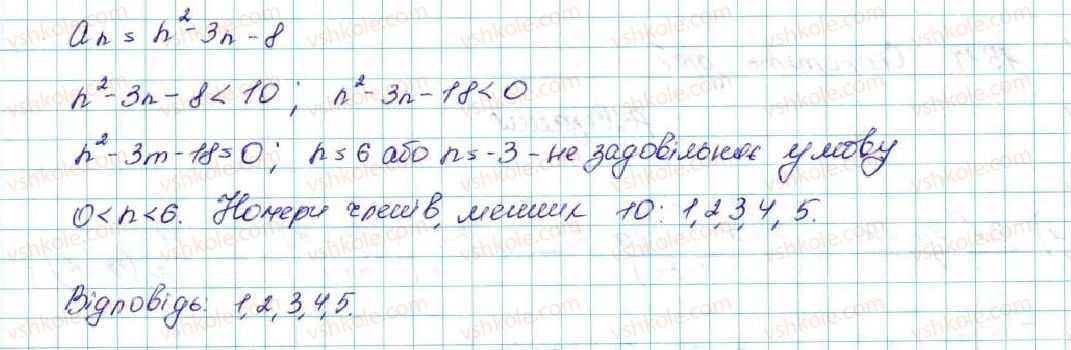 an = n² - 3n - 8
n² - 3n - 8 < 10; n² - 3n - 18 < 0
n² - 3m - 18 = 0; n = 6 або n = -3 - не задовільнає умову
0 < n < 6. Номери членів, менших 10: 1, 2, 3, 4, 5.
Відповідь: 1, 2, 3, 4, 5.